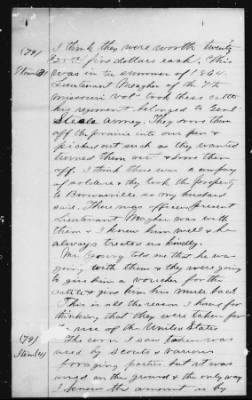 (78)
Item 3
I think they were worth twenty
five dollars each, This
was in the summer of 1864.
Lieutenant Meagher of the 7th
Missouri Vol. took these cattle
his regiment belonged to Genl
Steele's Army. They drove them
off the prairie into our pen &
picked out such as they wanted
turned them out & drove them
off. I think there was a company
of soldiers & they took the property
to Brownsville as my husband
said. The officer present
Lieutenant Meagher was with
them & I knew him well & he
always treated us kindly.
Mr Young told me that he was
going with them & they were going
to give him a voucher for the
cattle & give him his mule back
This is all the reason I have for
thinking that they were taken for
the use of the United States
(79)
Item 4
The corn I saw taken was
used by scouts & various
foraging parties but it was
used on the ground & the only way
I know the amount is by